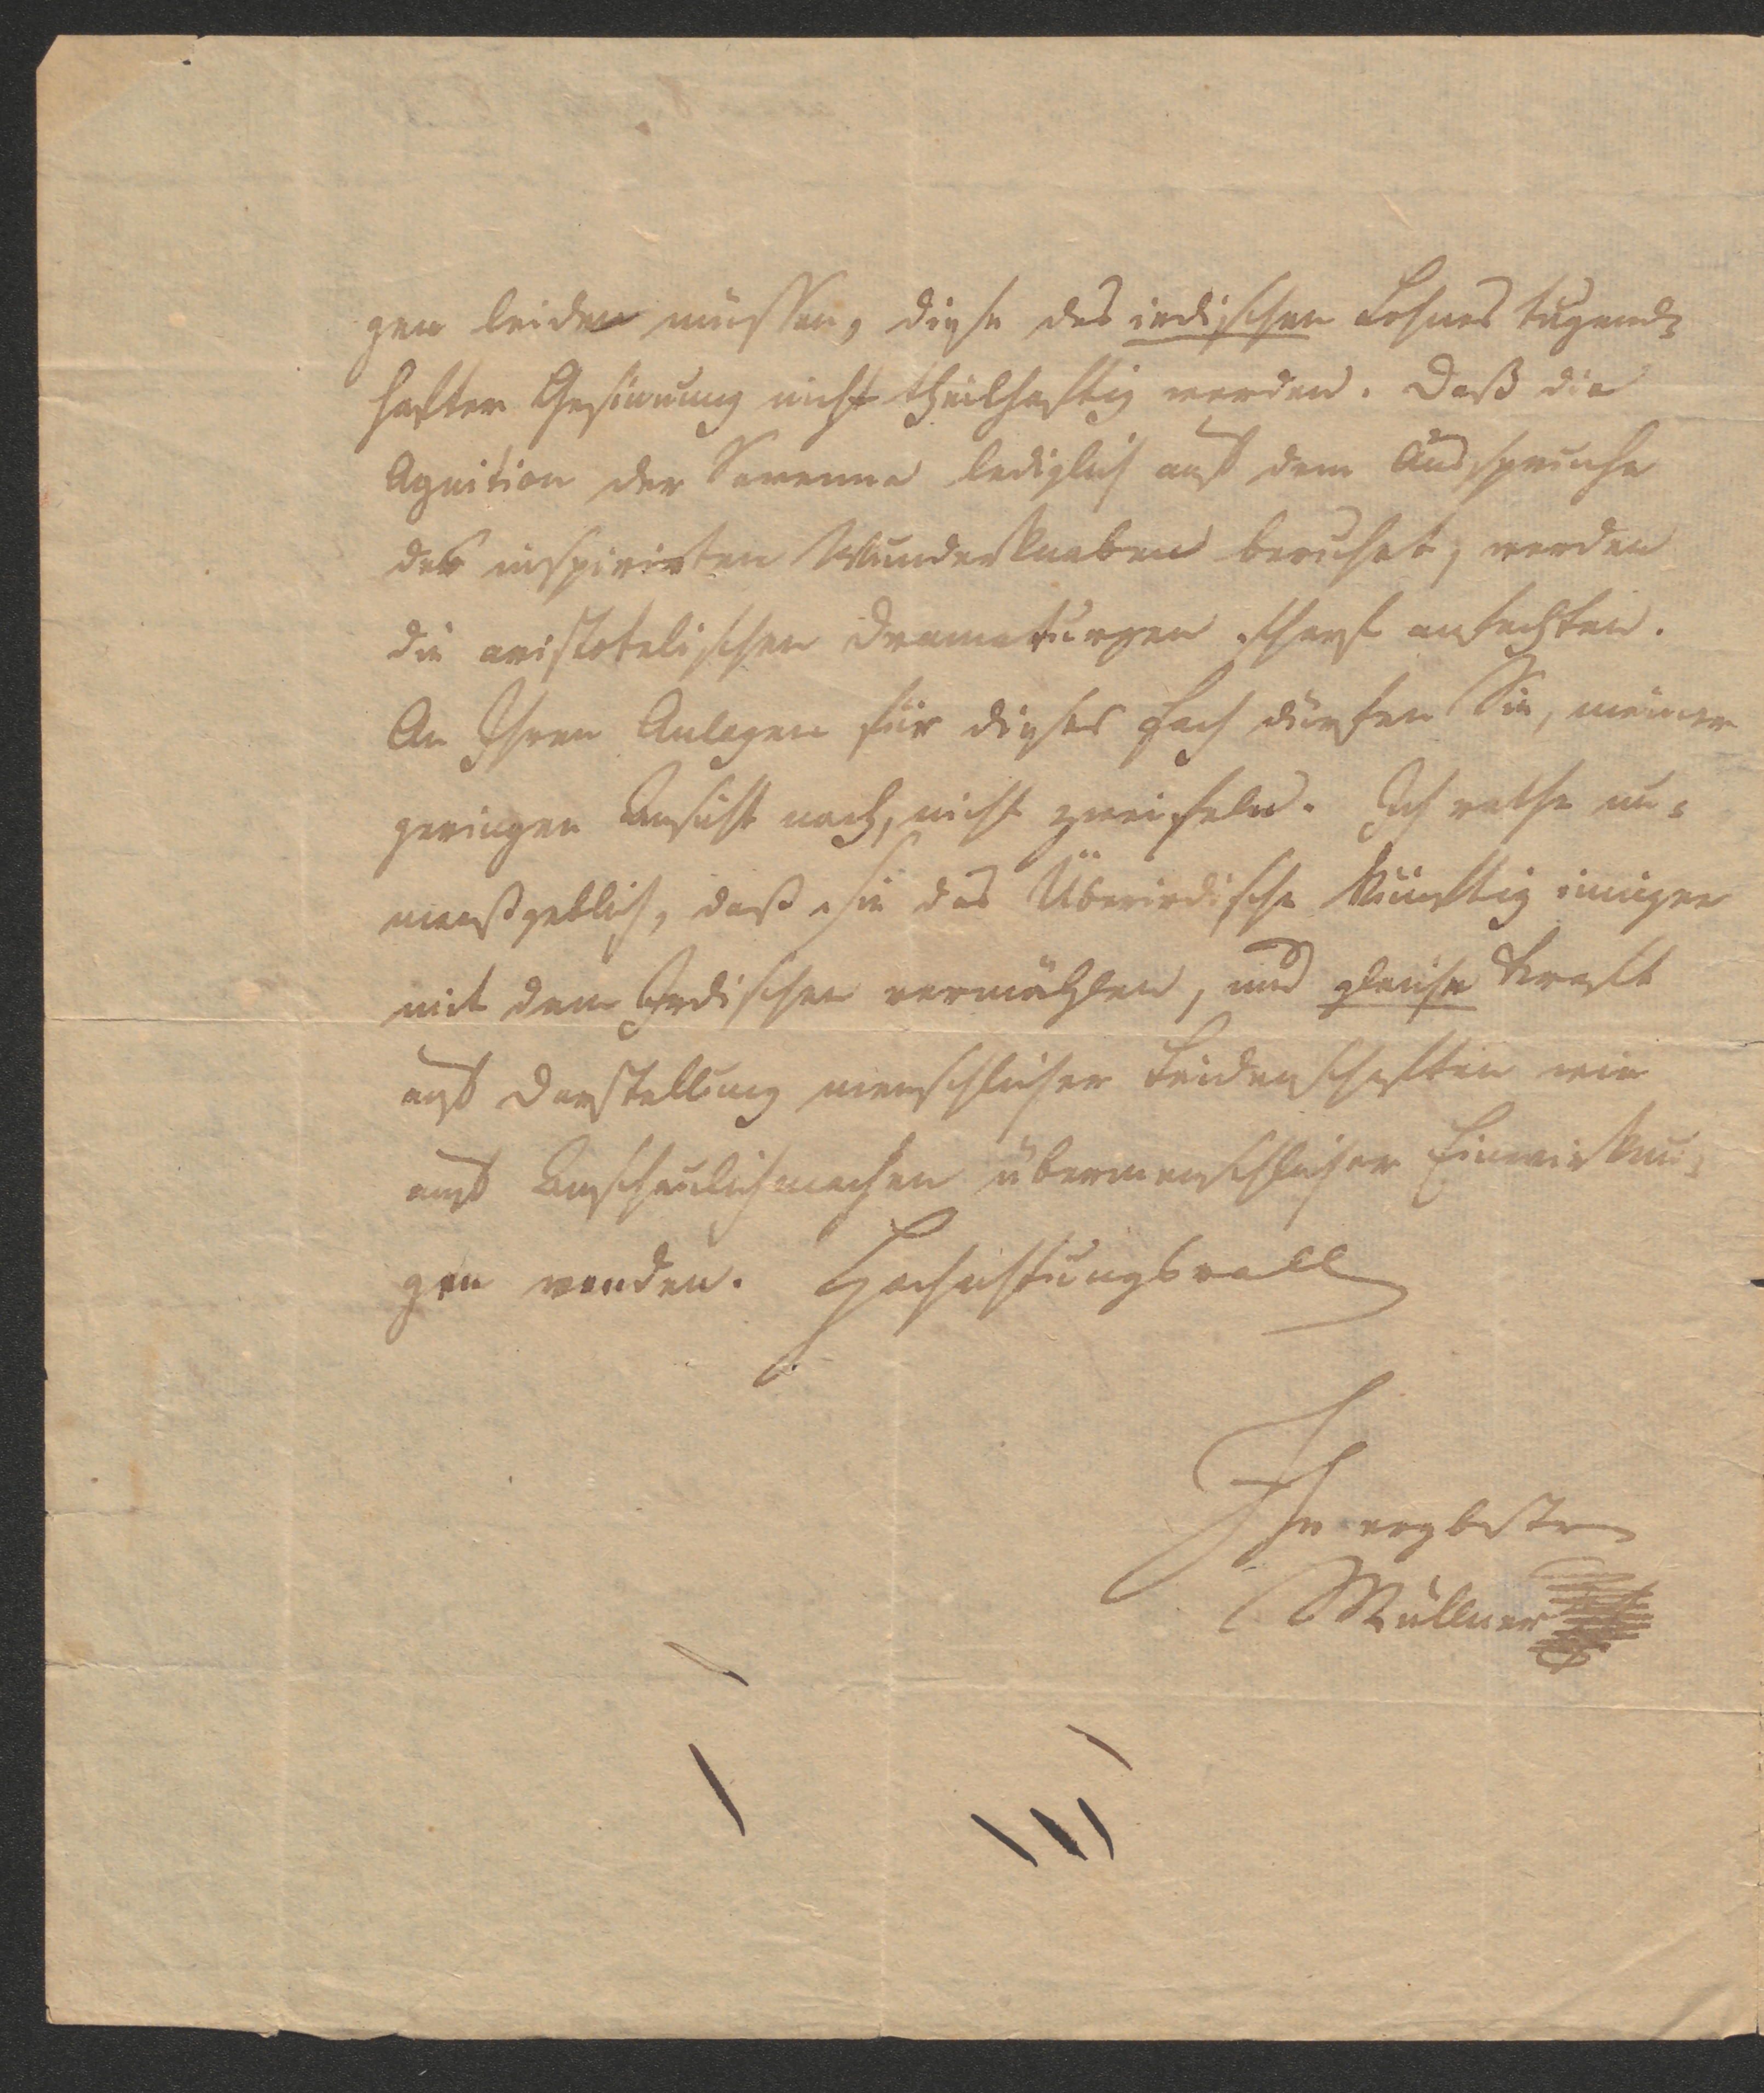 gen leiden müssen, diese des irdischen Lohnes tugend=
hafter Gesinnung nicht theilhaftig werden. Daß die
Agnition der Serenna lediglich auf dem Ausspruche
des inspirirten Wunderknaben beruhet, werden
die aristotelischen Dramaturgen scharf anfechten.
An Ihren Anlagen für dieses Fach dürfen Sie, meiner
geringen Ansicht nach, nicht zweifeln. Ich rathe un=
maßgeblich, daß sie das Überirdische künftig inniger
mit dem Irdischen vermählen, und gleiche Kraft
auf Darstellung menschlicher Leidenschaften wie
auf Anschaulichmachen übermenschlicher Einwirkun=
gen wenden. Hochachtungsvoll
Ihr ergbster
Müllner